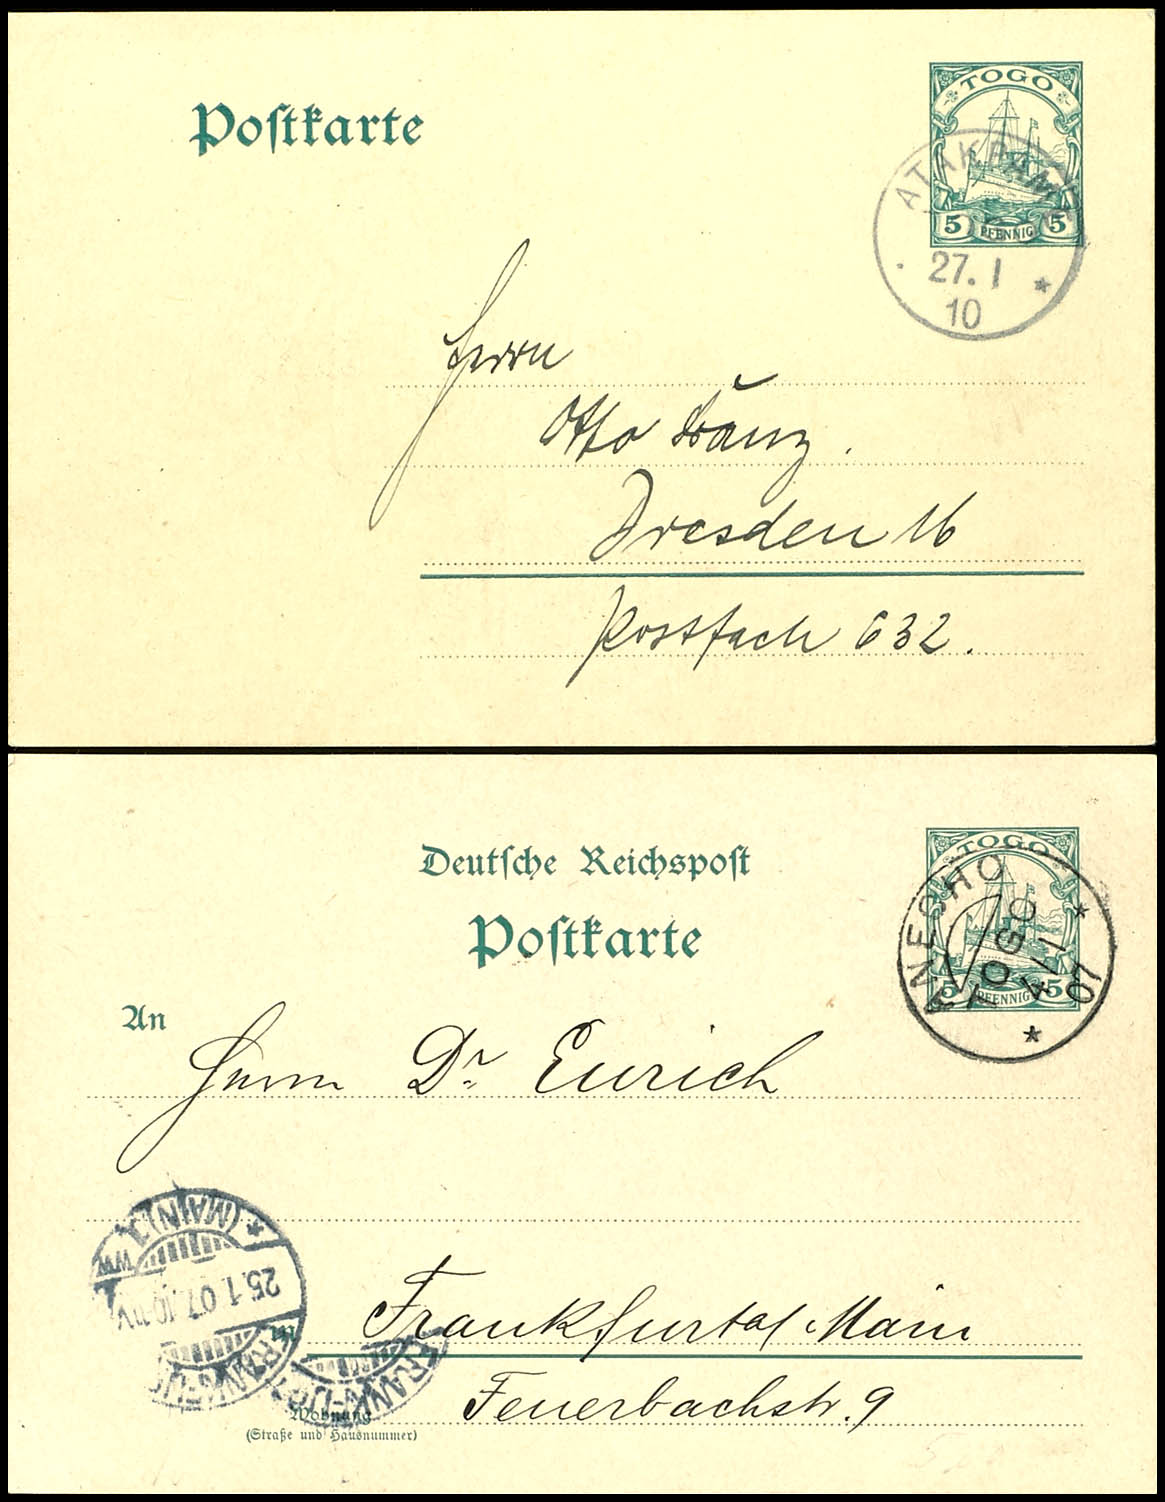 Postkarte
TOGO
5 PFENNIG 5
ATAKPAME
27. 1
10
Herrn
Otto
Dresden 16
Postfach 632.
Deutsche Reichspost
Postkarte
TOGO
5 PFENNIG 5
ANECHO
TOGO
4/1
07
An
Herrn Dr. Eurich
(MAIN) 1.
WW
25.1.07. 10-11V.
FRANKFURT
in
Frankfurt a/ Main
FRANKFURT
Feuerbachstr. 9
Wohnung
(Straße und Hausnummer)